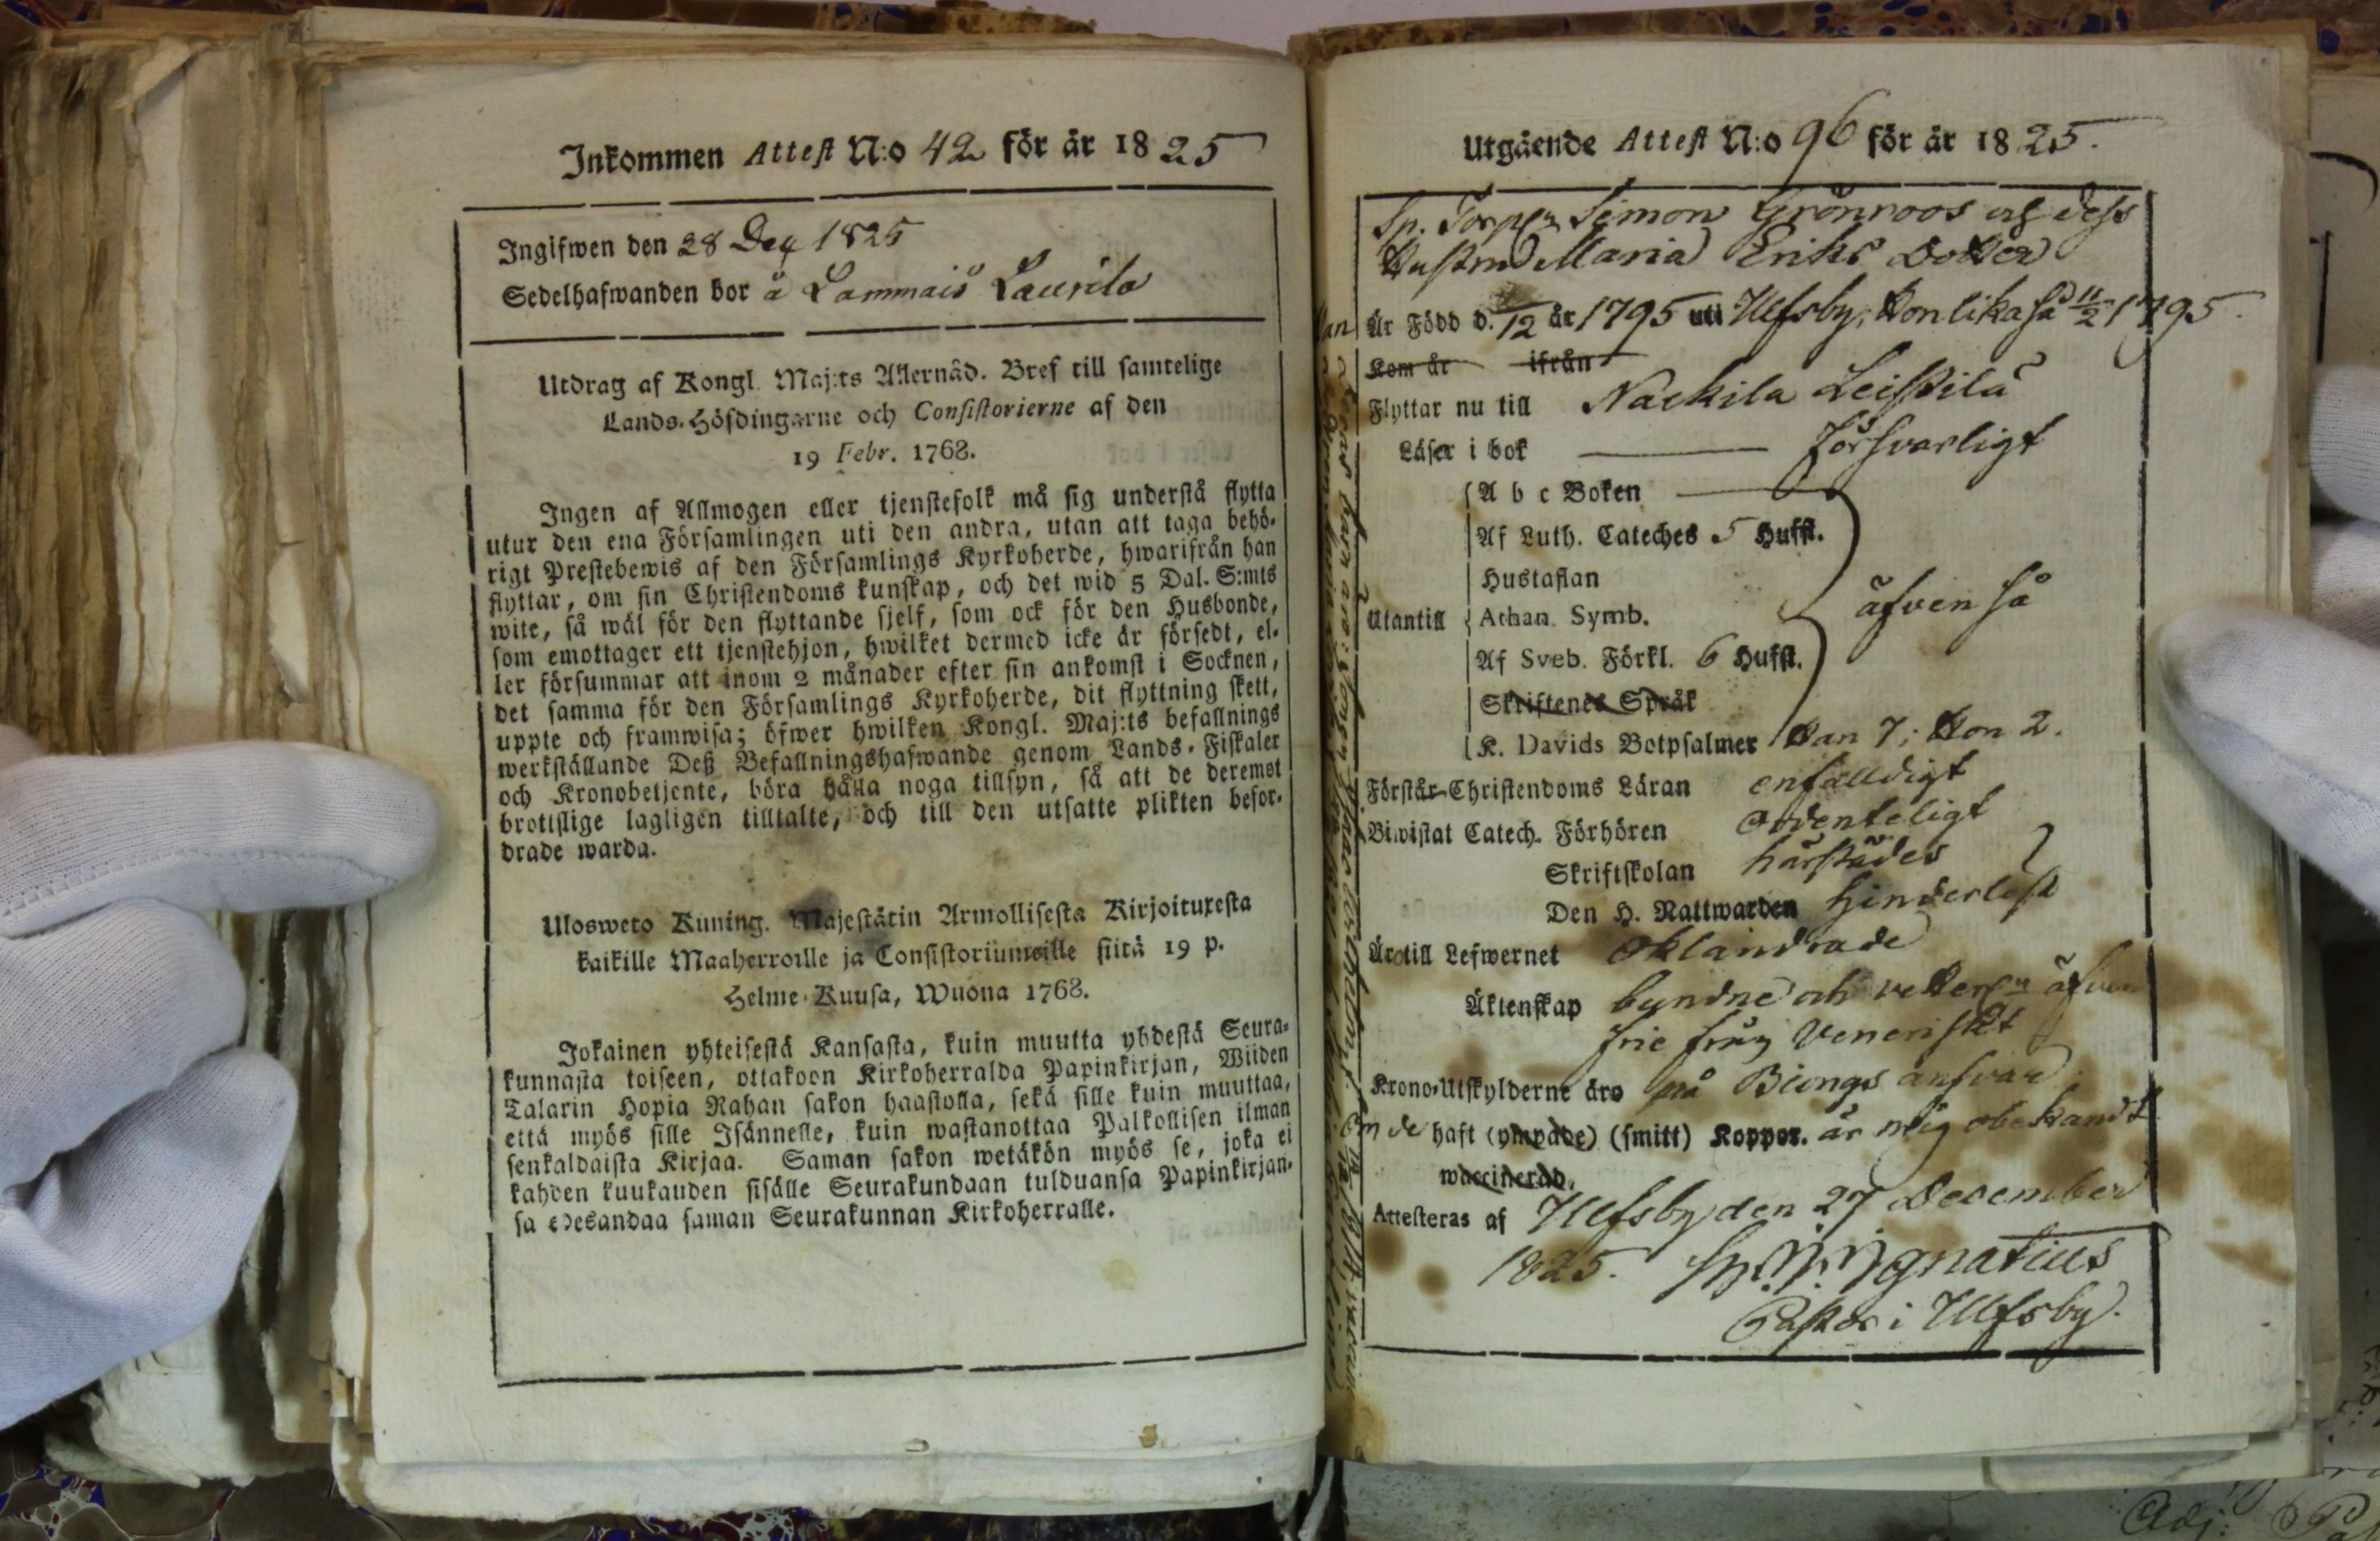 Inkommen Attest N:o 42 för år 1825
Ingifwen den 28 Dec 1825
Sedelhafwanden bor å Lammais Laurila
Utdrag af Kongl. Maj:ts Allernåd. Bref till samtelige
Lands-Höfdingarne och Consistorierne af den
19 Febr. 1768.
Ingen af Allmogen eller tjenstefolk må sig understå flytta
utur den ena Församlingen uti den andra, utan att taga behö-
rigt Prestebewis af den Församlings Kyrkoherde, hwarifrån han
flyttar, om sin Christendoms kunskap, och det wid 5 Dal. S:mts
wite, så wäl för den flyttande sjelf, som ock för den Husbonde,
som emottager ett tjenstehjon, hwilket dermed icke är försedt, el-
ler försummar att inom 2 månader efter sin ankomst i Socknen,
det samma för den Församlings Kyrkoherde, dit flyttning skett,
uppte och framwisa; öfwer hwilken Kongl. Maj:ts befallnings
werkställande Deß Befallningshafwande genom Lands-Fiskaler
och Kronobetjente, böra hålla noga tillsyn, så att de deremot
brottslige lagligen tilltalte, och till den utsatte plikten befor-
drade warda.
Ulosweto Kuning. Majestätin Armollisesta Kirjoituxesta
kaikille Maaherroille ja Consistoriumeille siitä 19 p.
Helme-Kuusa, Wuona 1768.
Jokainen yhteisestä Kansasta, kuin muutta yhdestä Seura-
kunnasta toiseen, ottakoon Kirkoherralda Papinkirjan, Wiiden
Talarin Hopia Rahan sakon haastolla, sekä sille kuin muuttaa,
että myös sille Isännelle, kuin wastanottaa Palkollisen ilman
senkaldaista Kirjaa. Saman sakon wetäkön myös se, joka ei
kahden kuukauden sisälle Seurakundaan tulduansa Papinkirjan-
sa edesandaa saman Seurakunnan Kirkoherralle.
Utgående Attest N:o 96 för år 1825.
Sp. Torp Simon Grönroos och dess
Hustru Maria Eriks Dotter
Är Född d. /12 år 1795 uti Ulfsby; Hon likaså 11/2 1795.
Kom år ifrån
Flyttar nu till Nackila Leistilä
Läser i bok försvarligt
A b c Boken
Af Luth. Cateches 5 Hufst.
Hustaflan
Utantill Athan. Symb. äfven så
Af Sveb. Förkl. 6 Hufst.
Skriftenes Språk
K. Davids Botpsalmer Han 7; Hon 2.
Förstår Christendoms Läran enfalldigt
Biwistat Catech. Förhören ordenteligt
Skriftskolan härstädes
Den H. Nattwarden hinderlöst
Äro till Lefwernet oklandrade
Äktenskap bundne och äfven
frie från Veneriskt
Krono-Utskylderne äro på Biongs ansvar
Om de haft (ympade) (smitt) Koppor. är mig obekandt
waccinerad.
Attesteras af Ulfsby den 27 December
1825. Ignatius
Pastor i Ulfsby.